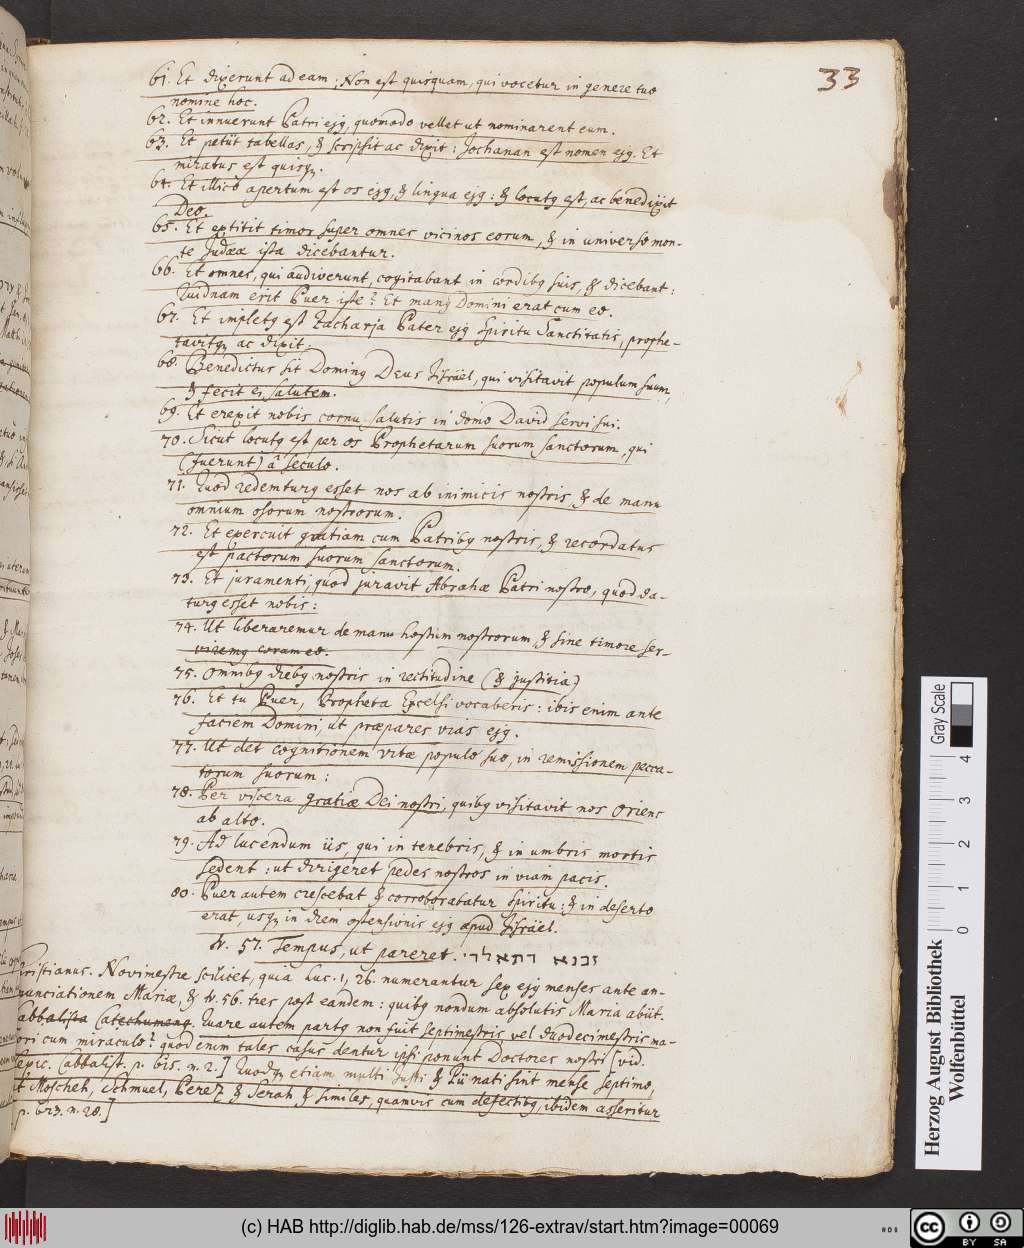 33
61. Et dixerunt ad eam: Non est quisquam, qui vocetur in genere tuo
nomine hoc.
62. Et innuerunt Patri ejq, quomodo vellet ut nominarent eum.
63. Et petiit tabellas, & scripsit ac dixit: Jochanan est nomen ejq. Et
miratus est quisqq.
64. Et illico apertum est os ejq, & lingua ejq: & locutq est, ac benedixit
Deo.
65. Et extitit timor super omnes vicinos eorum, & in universo mon-
te Judææ ista dicebantur.
66. Et omnes, qui audiverunt, cogitabant in cordibq suis, & dicebant:
Quidnam erit Puer iste? Et manq Domini erat cum eo.
67. Et impletq est Zacharja Pater ejq Spiritu Sanctitatis, prophe-
tavitqq ac dixit:
68. Benedictus sit Dominq Deus Jisraël, qui visitavit populum suum,
& fecit ei salutem.
69. Et erexit nobis cornu salutis in domo David servi sui.
70. Sicut locutq est per os Prophetarum suorum sanctorum, qui
(fuerunt) â seculo.
71. Quod redemturq esset nos ab inimicis nostris, & de manu
omnium osorum nostrorum.
72. Et exercuit gratiam cum Patribq nostris, & recordatus
est pactorum suorum sanctorum.
73. Et juramenti, quod juravit Abrahæ Patri nostro, quod da-
turq esset nobis:
74. Ut liberaremur de manu hostium nostrorum, & sine timore ser-
viremq coram eo.
75. Omnibq diebq nostris in rectitudine (& justitia)
76. Et tu Puer, Propheta Excelsi vocaberis: ibis enim ante
faciem Domini, ut præpares vias ejq.
77. Ut det cognitionem vitæ populo suo, in remissionem pecca-
torum suorum:
78. Per viscera gratiæ Dei nostri, quibq visitavit nos Oriens
ab alto.
79. Ad lucendum iis, qui in tenebris, & in umbris mortis
sedent: ut dirigeret pedes nostros in viam pacis.
80. Puer autem crescebat & corroborabatur spiritu: & in deserto
erat, usqq in diem ostensionis ejq apud Jisraël.
v. 57. Tempus, ut pareret. זבנא דתאלד
Christianus. Novimestre scilicet, quia Luc. 1, 26. numerantur sex ejq menses ante an-
nunciationem Mariæ, & v. 56. tres post eandem: quibq nondum absolutis Maria abiit.
Cabbalista Catechumenq. Quare autem partq non fuit septimestris vel duodecimestris ma-
jori cum miraculo? quod enim tales casus dentur ipsi ponunt Doctores nostri [vid.
Lexic. Cabbalist. p. bis. n. 2.] Quodqq etiam multi Justi & Pii nati sint mense septimo,
ut Moscheh, Schmuel, Perez & Serah, & similes, quamvis cum defectibq, ibidem asseritur
p. 623. n. 28.]
Gray Scale
0 1 2 3 4
Herzog August Bibliothek
Wolfenbüttel
(c) HAB http://diglib.hab.de/mss/126-extrav/start.htm?image=00069
HAB
cc BY SA